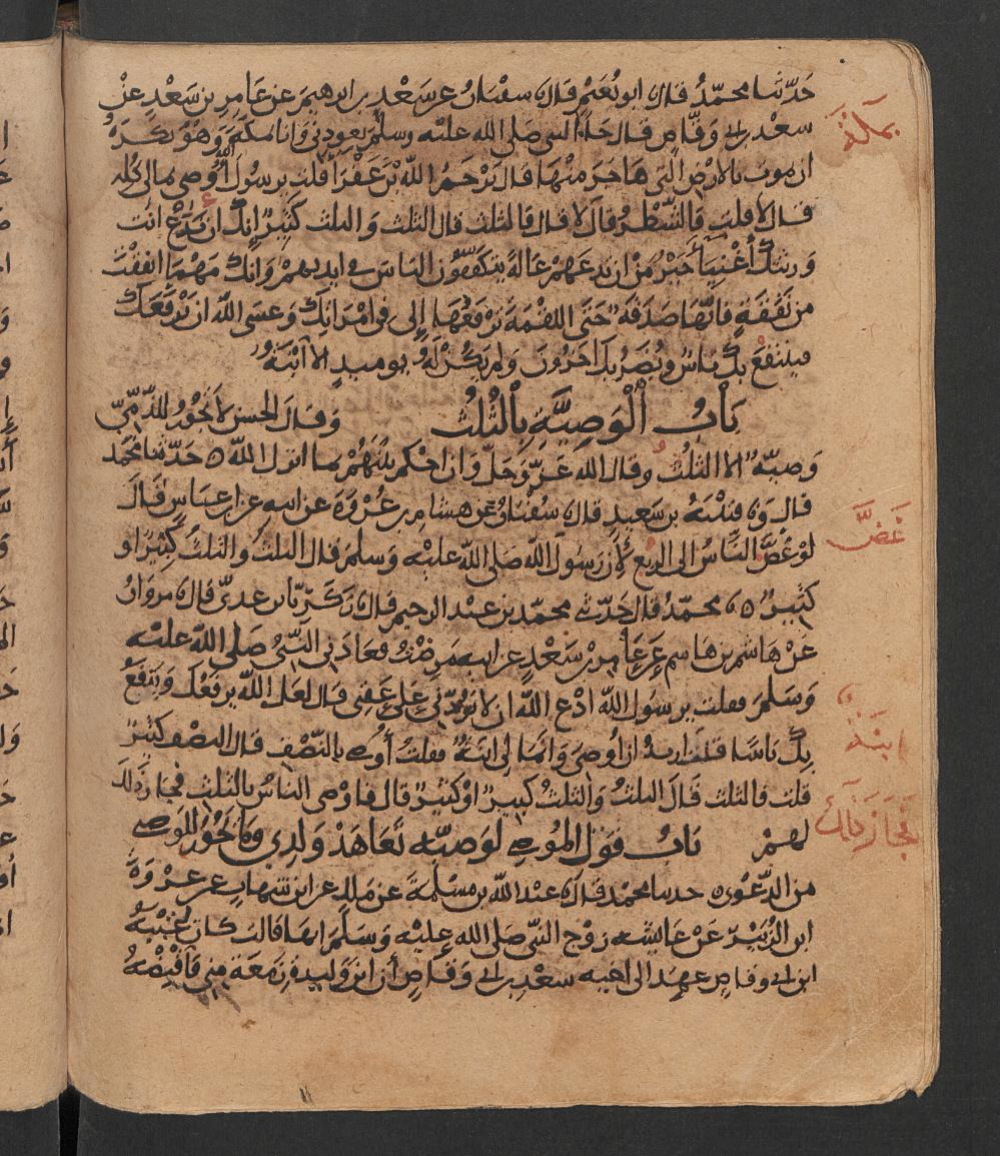 حدثنا محمد قال نا ابو نعيم قال نا سفيان عن سعد بن ابرهيم عن عامر بن سعد عن
سعد بن ابي وقاص قال جاء النبي صلى الله عليه وسلم يعودني وانا بمكة وهو يكره
ان يموت بالارض التي هاجر منها قال يرحم الله بن عفرا قلت يرسول الله اوصي بمالي كله
قال لا قلت فالشطر قال لا قال فالثلث قال الثلث والثلث كثير انك ان تدع انت
ورثتك اغنياء خير من ان تدعهم عالة يتكففون الناس في ايديهم وانك مهما انفقت
من نفقة فانها صدقة حتى اللقمة ترفعها الى في امراتك وعسى الله ان يرفعك
فينتفع بك ناس ويضر بك اخرون ولم يكن له يوميد الا ابنة
باب الوصية بالثلث وقال الحسن لا تجوز للذمي
وصية الا الثلث وقال الله عز وجل وان احكم بينهم بما انزل الله ه حدثنا محمد
قال نا قتيبة بن سعيد قال نا سفيان عن هشام بن عروة عن ابيه عن ابن عباس قال
لو غض الناس الى الربع لان رسول الله صلى الله عليه وسلم قال الثلث والثلث كثير او
كبير ه نا محمد قال حدثني محمد بن عبد الرحيم قال نا زكريا بن عدي قال نا مروان
عن هاشم بن هاشم عن عامر بن سعد عن ابيه مرضت فعادني النبي صلى الله عليه
وسلم فقلت يرسول الله ادع الله ان لا يردني على عقبي قال لعل الله يرفعك وينفع
بك ناسا قلت اريد ان اوصي وانما لي ابنة فقلت أوصي بالنصف قال النصف كثير
قلت فالثلث قال الثلث والثلث كبير او كثير قال فاوصى الناس بالثلث فجاز ذلك
لهم باب قول الموصي لوصيه تعاهد ولدي وما يجوز للوصي
من الدعوى حدثنا محمد قال نا عبد الله بن مسلمة عن ملك عن ابن شهاب عن عروة
ابن الزبير عن عايشه زوج النبي صلى الله عليه وسلم انها قالت كان عتبة
ابن ابي وقاص عهد الى اخيه سعد بن ابي وقاص ان ابن وليدة زمعة مني فاقبضه
بمكة
غض
ابنة
فجاز ذلك